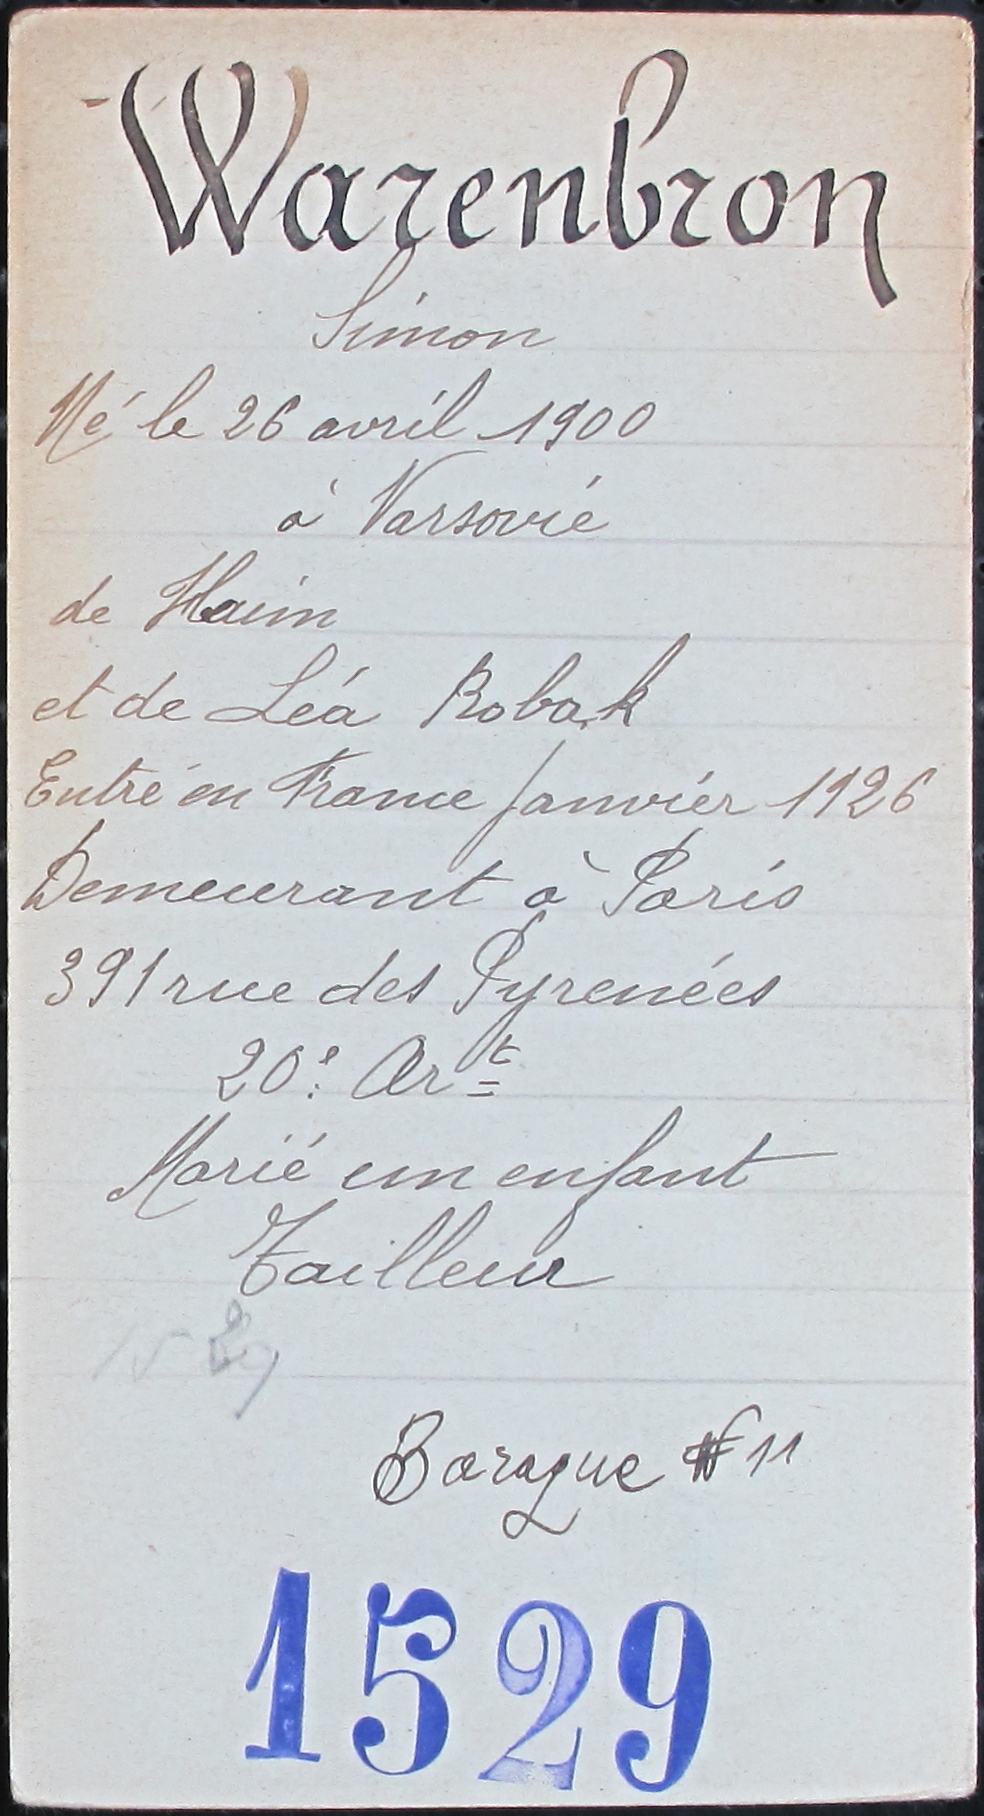 Warenbron
Simon
Né le 26 avril 1900
à Varsovie
de Haim
et de Léa Robak
Entré en France Janvier 1926
Demeurant à Paris
391 rue des Pyrenées
20e Art
Marié un enfant
Tailleur
1529
Baraque # 11
1529